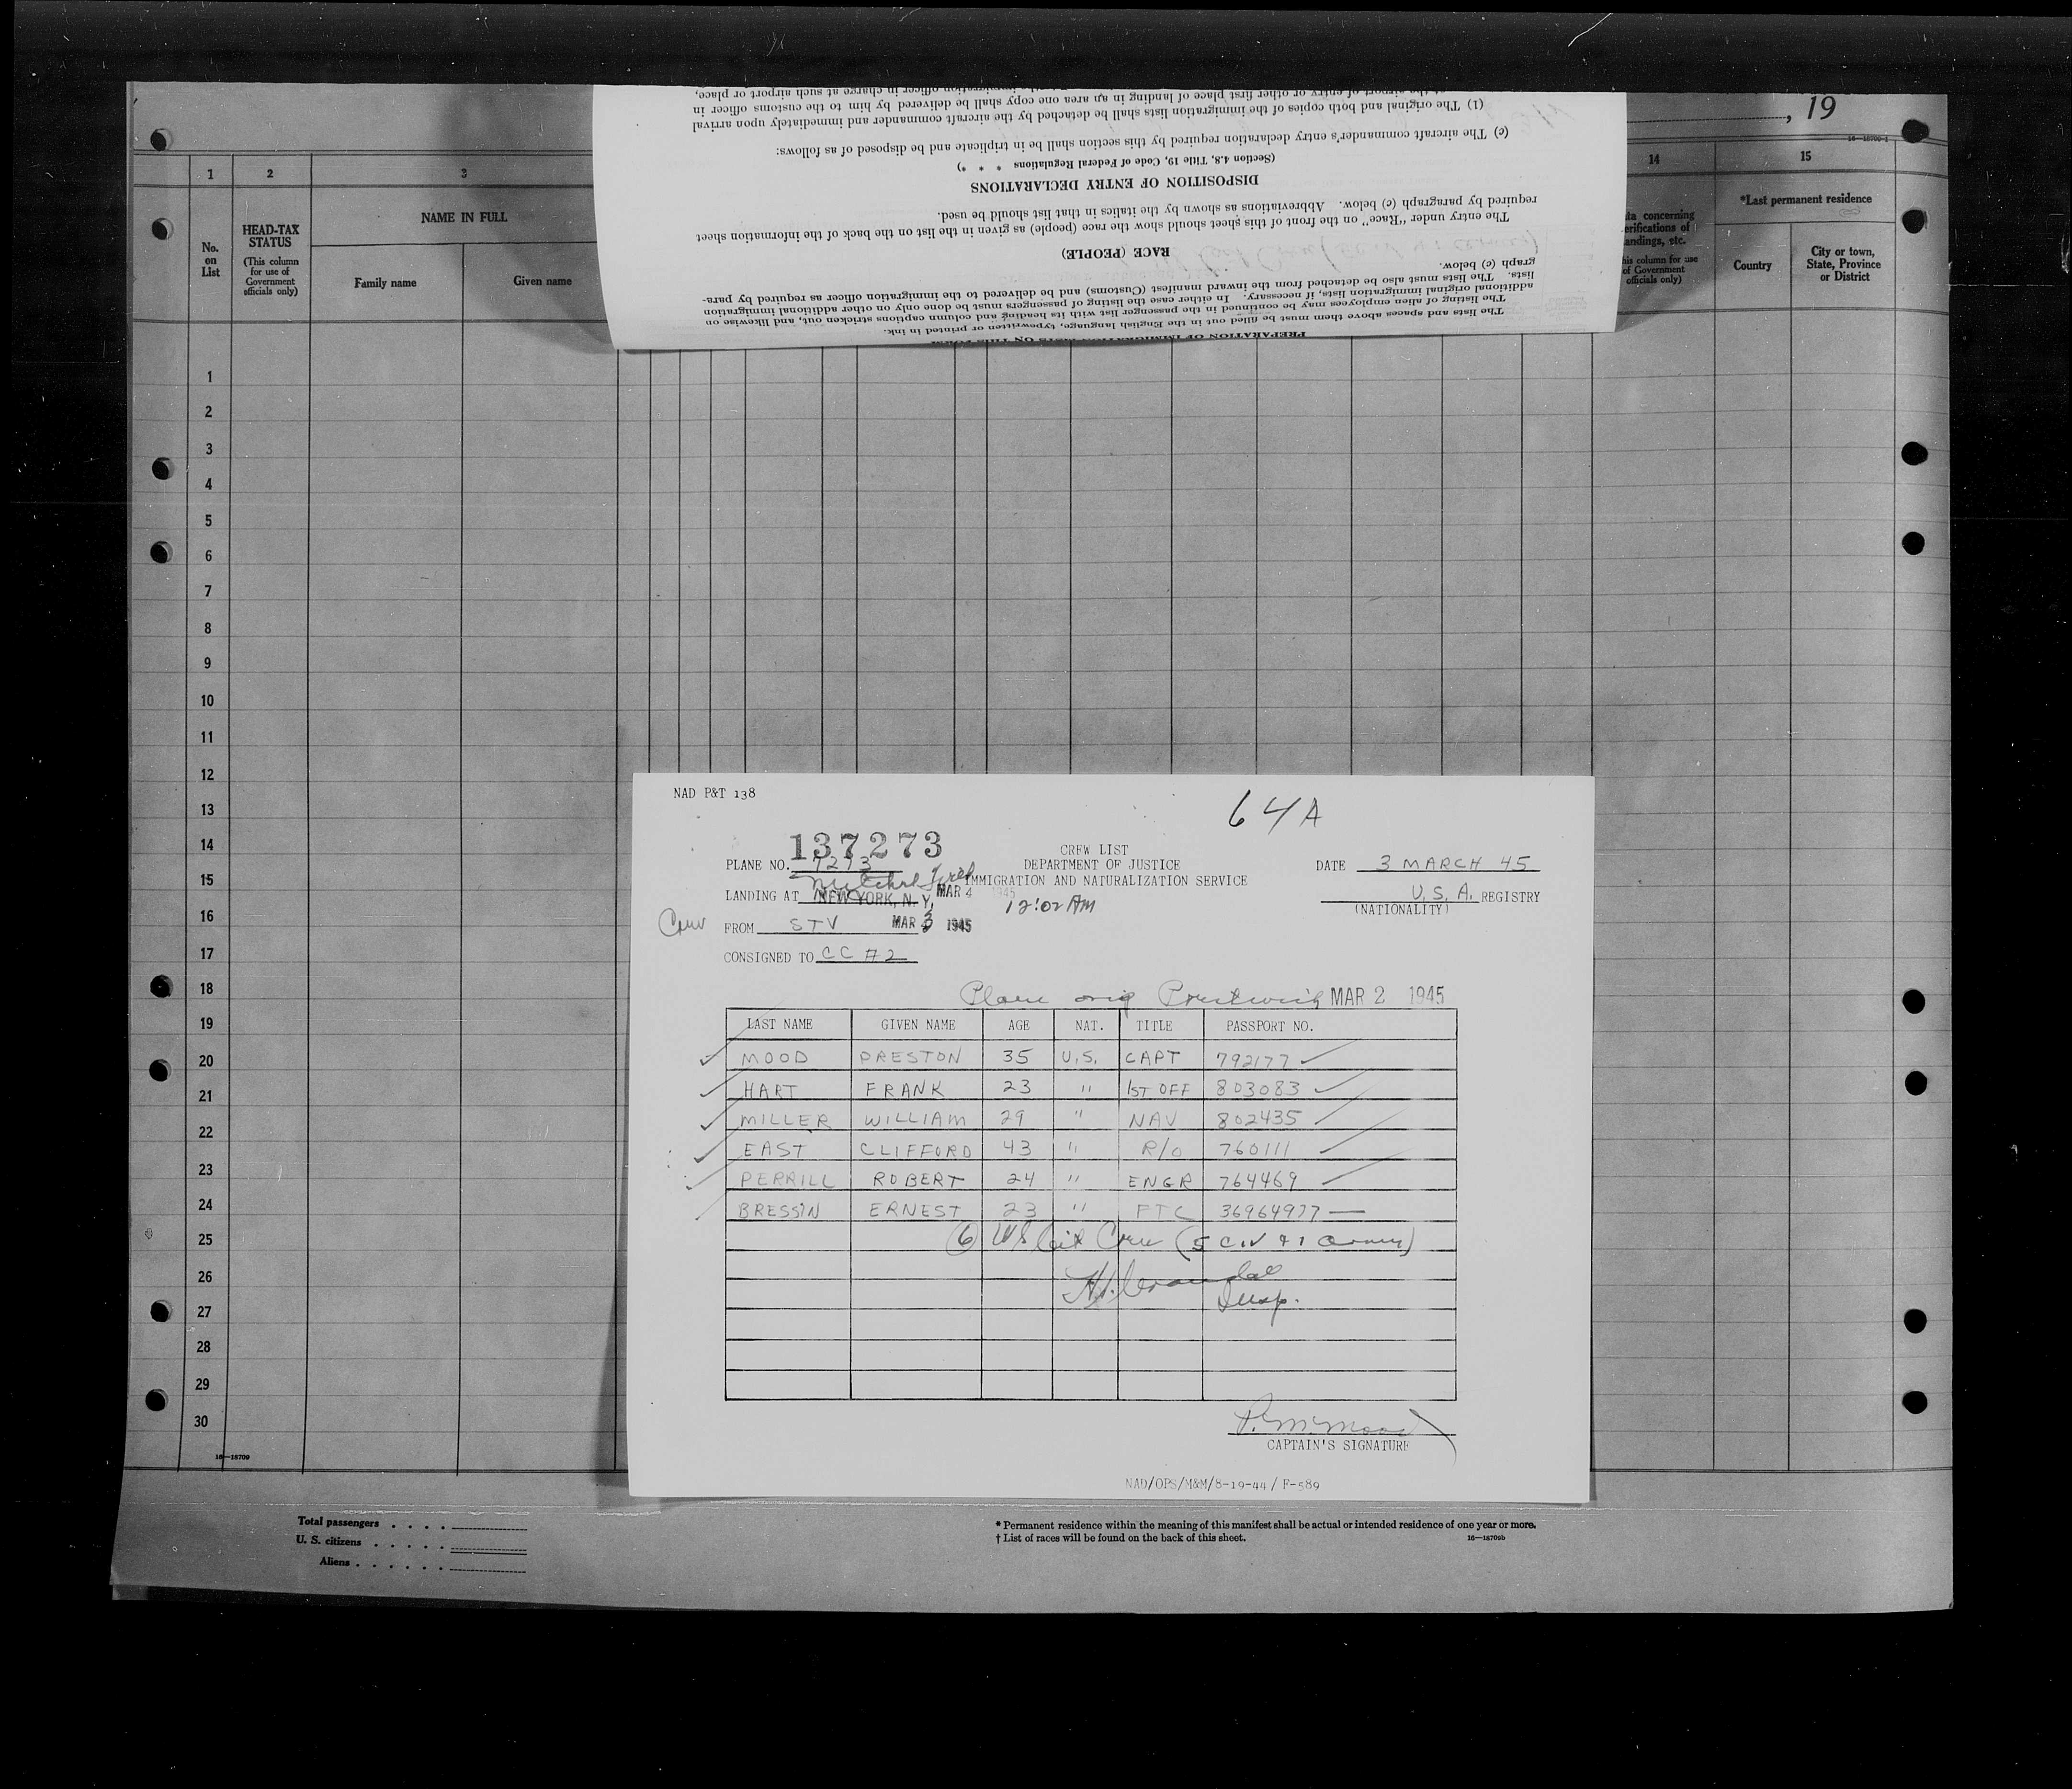 , 19
16—18709-1
1 2 3 14 15
No. on List
HEAD-TAX STATUS
(This column for use of Government officials only)
NAME IN FULL
Family name Given name
ta concerning
erifications of
andings, etc.
his column for use
of Government
officials only)
*Last permanent residence
Country
City or town, State, Province or District
(1) The original and both copies of the immigration lists shall be detached by the aircraft commander and immediately upon arrival
at the airport of entry or other first place of landing in an area one copy shall be delivered by him to the customs officer in
immigration officer in charge at such airport or place,
(c) The aircraft commander's entry declaration required by this section shall be in triplicate and be disposed of as follows:
(Section 4.8, Title 19, Code of Federal Regulations * * *)
DISPOSITION OF ENTRY DECLARATIONS
required by paragraph (c) below. Abbreviations as shown by the italics in that list should be used.
The entry under "Race" on the front of this sheet should show the race (people) as given in the list on the back of the information sheet
RACE (PEOPLE)
graph (c) below.
lists. The lists must also be detached from the inward manifest (Customs) and be delivered to the immigration officer as required by para-
additional original immigration lists, if necessary. In either case the listing of passengers must be done only on other additional immigration
The listing of alien employees may be continued in the passenger list with its heading and column captions stricken out, and likewise on
The lists and spaces above them must be filled out in the English language, typewritten or printed in ink.
PREPARATION OF IMMIGRATION LISTS ON THIS FORM
1
2
3
4
5
6
7
8
9
10
11
12
13
14
15
16
17
18
19
20
21
22
23
24
25
26
27
28
29
30
16—18709
NAD P&T 138
64A
137273
PLANE NO. 7273
CREW LIST
DEPARTMENT OF JUSTICE
IMMIGRATION AND NATURALIZATION SERVICE
DATE 3 MARCH 45
Mitchel Field
LANDING AT NEW YORK, N. Y. MAR 4 1945
12:02 AM
U.S.A. REGISTRY
(NATIONALITY)
Crew FROM STV MAR 3 1945
CONSIGNED TO CC #2
Plane orig Prestwick MAR 2 1945
LAST NAME GIVEN NAME AGE NAT. TITLE PASSPORT NO.
MOOD PRESTON 35 U.S. CAPT 792177
HART FRANK 23 " 1ST OFF 803083
MILLER WILLIAM 29 " NAV 802435
EAST CLIFFORD 43 " R/O 760111
PERRILL ROBERT 24 " ENGR 764469
BRESSIN ERNEST 23 " FTC 36964977
6 US Cit Crew (5 CIV & 1 Army)
H. Crandal
Insp.
P. M. Mood
CAPTAIN'S SIGNATURE
NAD/OPS/M&M/8-19-44/ F-589
Total passengers . . . .
U. S. citizens . . . . .
Aliens . . . . . .
* Permanent residence within the meaning of this manifest shall be actual or intended residence of one year or more.
† List of races will be found on the back of this sheet.
16—18709b